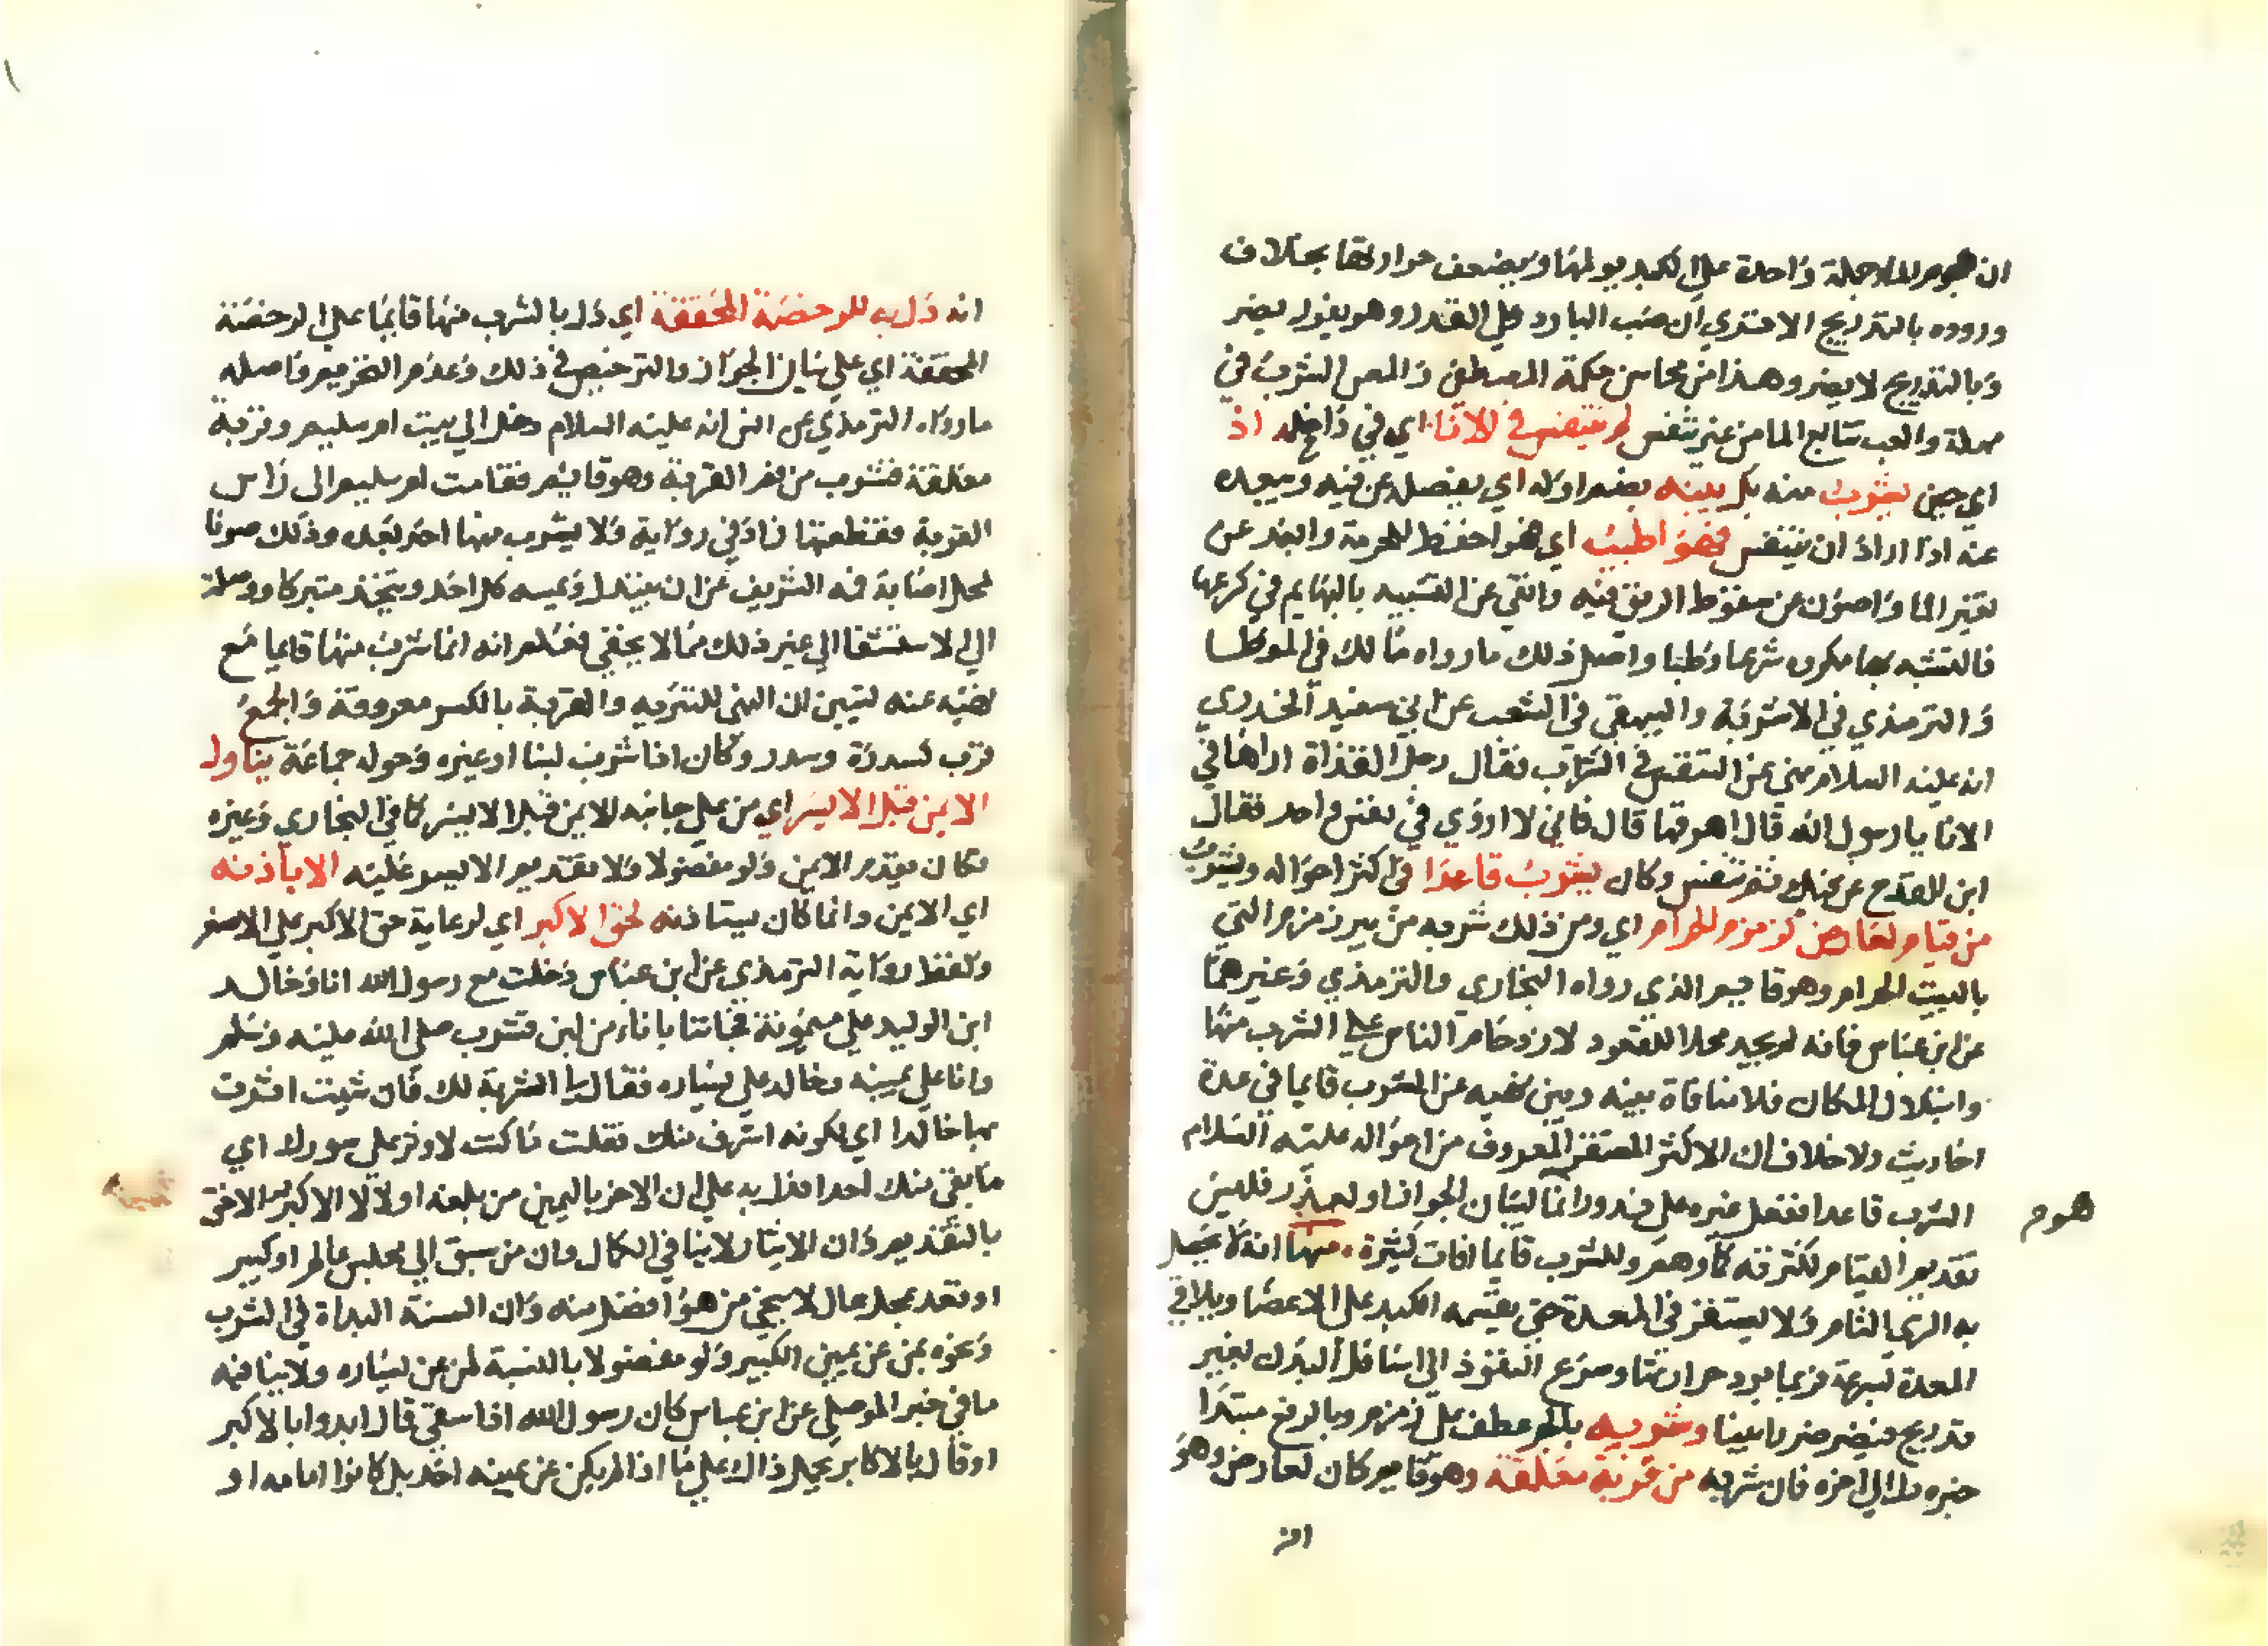 ان هجوم الماء جملة واحدة علي الكبد يولمها ويضعف حرارتها بخلاف
وروده بالتدريج الا تري ان صب البارد علي القدر وهو يفور يضر
وبالتدريج لا يضر وهذا من محاسن حكمة المصطفي والمص الشرب في
مهلة والعب تتابع الما من غير تنفس لم يتنفس في الانا اي في داخله اذ
اي حين يشرب منه بل يبينه بضم اوله اي يفصله عن فيه ويبعده
عنه اذا اراد ان يتنفس فهو اطيب اي هو احفظ للحرمة وابعد عن
تغير الما واصون عن سقوط الريق فيه وانقي عن التشبيه بالبهايم في كرعها
فالتشبه بها مكروه شرعا وطبا واصل ذلك ما رواه مالك في الموطا
والترمذي في الاشربة والبيهقي في الشعب عن ابي سعيد الخدري
انه عليه السلام نهي عن التنفس في الشراب فقال رجل القذاة اراها في
الانا يا رسول الله قال اهرقها قال فاني لا اروي في نفس واحد فقال
ابن القدح عن فيك ثم تنفس وكان يشرب قاعدا في اكثر احواله ويشرب
من قيام لعارض كزمزم الحرام اي ومن ذلك شربه من بير زمزم التي
بالبيت الحرام وهو قايم الذي رواه البخاري والترمذي وغيرهما
عن ابن عباس فانه لم يجد محلا للقعود لازدحام الناس علي الشرب منها
وابتلال المكان فلا منافاة بينه وبين نهيه عن الشرب قايما في عدة
احاديث ولا خلاف ان الاكثر المستقر المعروف من احواله عليه السلام
الشرب قاعدا ففعل غيره علي ندور انما لبيان الجواز او لعذر فليس
هوم
تقديم القيام لكثرته كما وهم وللشرب قايما افات كثيرة منها انه لا يحصل
به الري التام ولا يستقر في المعدة حتي يقسمه الكبد علي الاعضا ويلاقي
المعدة بسرعة فربما برد حرارتها وسرع النفوذ الي اسافل البدن بغير
تدريج فيضر ضررا بينا وشربه بالجر عطف علي زمزم وبالرفع مبتدا
خبره دال الي اخره فان شربه من قربة معلقة وهو قايم كان لعارض وهو
انه
انه دل به للرخصة المحققة اي دل بالشرب منها قايما علي الرخصة
المحققة اي علي بيان الجواز والترخيص في ذلك وعدم التحريم واصله
ما رواه الترمذي عن انس انه عليه السلام دخل الي بيت ام سليم وقربة
معلقة فشرب من فم القربة وهو قايم فقامت ام سليم الي راس
القربة فقطعتها زاد في رواية ولا يشرب منها احد بعده وذلك صونا
لمحل اصابه فمه الشريف عن ان يبتذل ويمسه كل احد ويتخذ متبركا ووصلة
الي الاستشفا الي غير ذلك مما لا يخفي فعلم انه انما شرب منها قايما مع
نهيه عنه ليتبين ان النهي للتنزيه والقربة بالكسر معروفة والجمع
قرب كسدرة وسدر وكان اذا شرب لبنا او غيره وحوله جماعة يناول
الايمن قبل الايسر اي من علي جانبه الايمن قبل الايسر كما في البخاري وغيره
فكان يقدم الايمن ولو مفضولا ولا تقديم الايسر عليه الا باذنه
اي الايمن وانما كان يستاذنه لحق الاكبر اي لرعاية حق الاكبر علي الاصغر
ولفظ رواية الترمذي عن ابن عباس دخلت مع رسول الله انا وخالد
ابن الوليد علي ميمونة فجاتنا باناء من لبن فشرب صلي الله عليه وسلم
وانا علي يمينه وخالد علي يساره فقال لي الشربة لك فان شيت اثرت
بها خالدا اي لكونه اشرف منك فقلت ما كنت لاوثر علي سورك اي
ما بقي منك احدا فدل به علي ان الاخذ باليمين من بلغه اولا لا الاكبر الاحق
بالتقديم وان الايثار لا ينافي الكمال وان من سبق الي مجلس عالم او كبير
او قعد بمجلس عال لا ينحي من هو افضل منه وان السنة البداة في الشرب
ونحوه بمن عن يمين الكبير ولو مفضولا بالنسبة لمن عن يساره ولا ينافيه
ما في خبر الموصلي عن ابن عباس كان رسول الله اذا سقي قال ابدوا بالاكبر
او قال بالاكابر يحمل ذاك علي ما اذا لم يكن عن يمينه احد بل كانوا امامه او